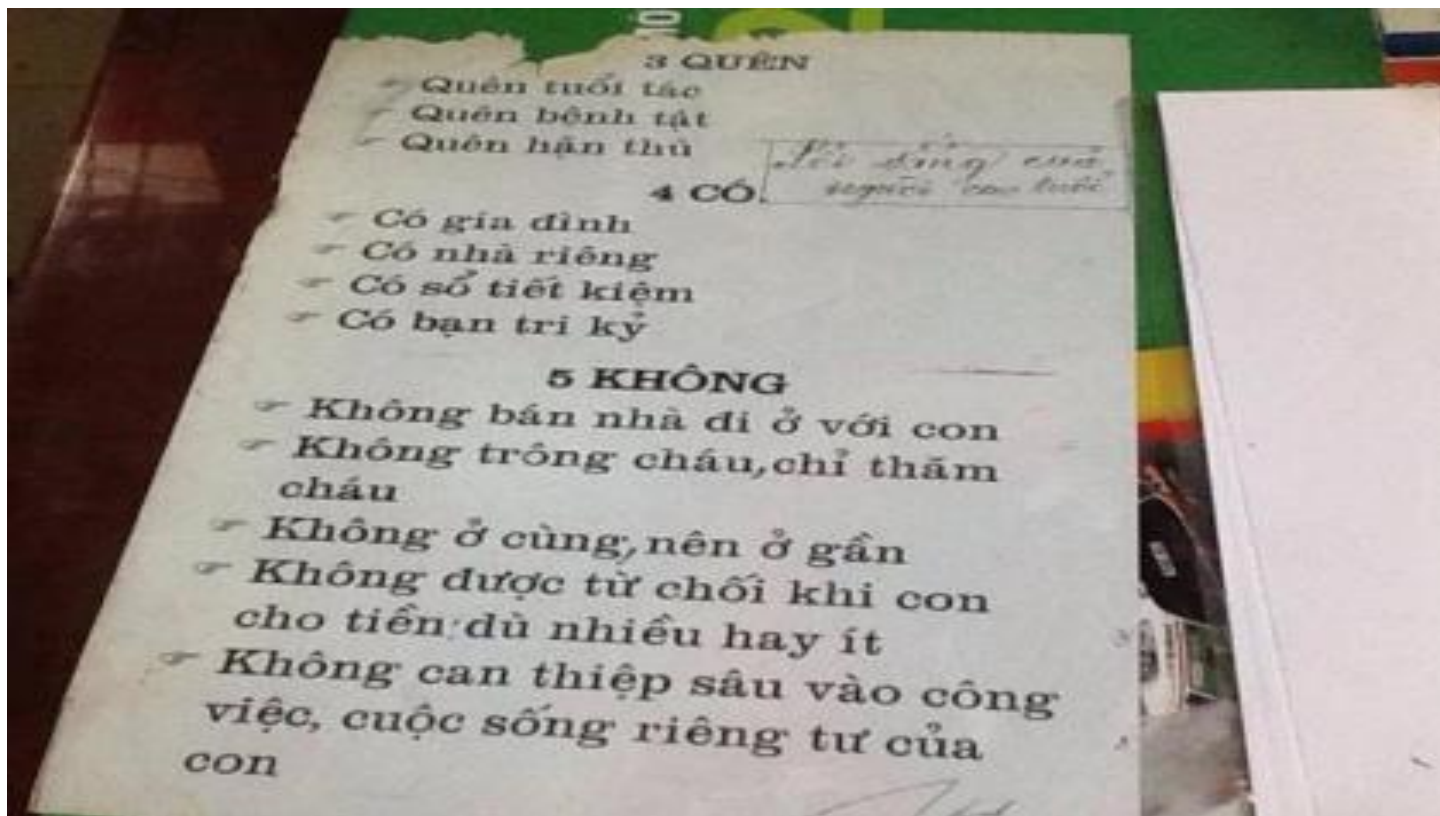 3 QUÊN
Quên tuổi tác
Quên bệnh tật
Quên hận thù
Lối sống của
người cao tuổi
4 CÓ.
Có gia đình
Có nhà riêng
Có sổ tiết kiệm
Có bạn tri kỷ
5 KHÔNG
Không bán nhà đi ở với con
Không trông cháu,chỉ thăm
cháu
Không ở cùng,nên ở gần
Không được từ chối khi con
cho tiền dù nhiều hay ít
Không can thiệp sâu vào công
việc, cuộc sống riêng tư của
con